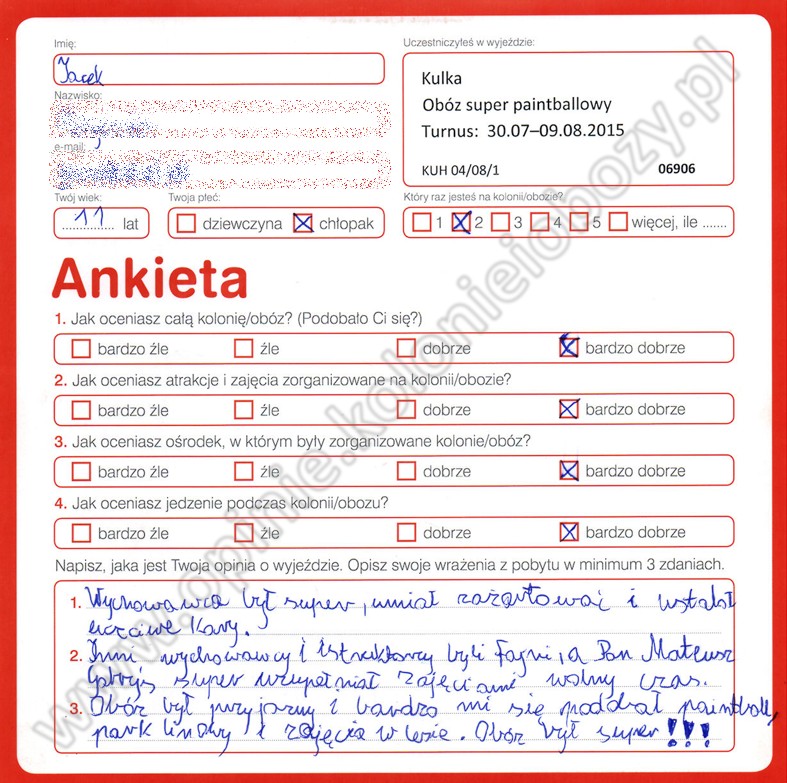 Imię:
Jacek
Uczestniczyłeś w wyjeździe:
Kulka
Obóz super paintballowy
Turnus: 30.07–09.08.2015
KUH 04/08/1 06906
Nazwisko:
e-mail:
Twój wiek:
11 lat
Twoja płeć:
dziewczyna chłopak
Który raz jesteś na kolonii/obozie?
1 2 3 4 5 więcej, ile .......
Ankieta
1. Jak oceniasz całą kolonię/obóz? (Podobało Ci się?)
bardzo źle źle dobrze bardzo dobrze
2. Jak oceniasz atrakcje i zajęcia zorganizowane na kolonii/obozie?
bardzo źle źle dobrze bardzo dobrze
3. Jak oceniasz ośrodek, w którym były zorganizowane kolonie/obóz?
bardzo źle źle dobrze bardzo dobrze
4. Jak oceniasz jedzenie podczas kolonii/obozu?
bardzo źle źle dobrze bardzo dobrze
Napisz, jaka jest Twoja opinia o wyjeździe. Opisz swoje wrażenia z pobytu w minimum 3 zdaniach.
1. Wychowawca był super, umiał zażartować i ustalał
uczciwe kary.
2. Inni wychowawcy i istruktorzy byli fajni, a Pan Mateusz
super uzupełniał zajęciami wolny czas.
3. Obóz był przyjazny i bardzo mi się poddał paintball,
park linowy i zajęcia w lesie. Obóz był super!!!
www.opinie.kolonieiobozy.pl